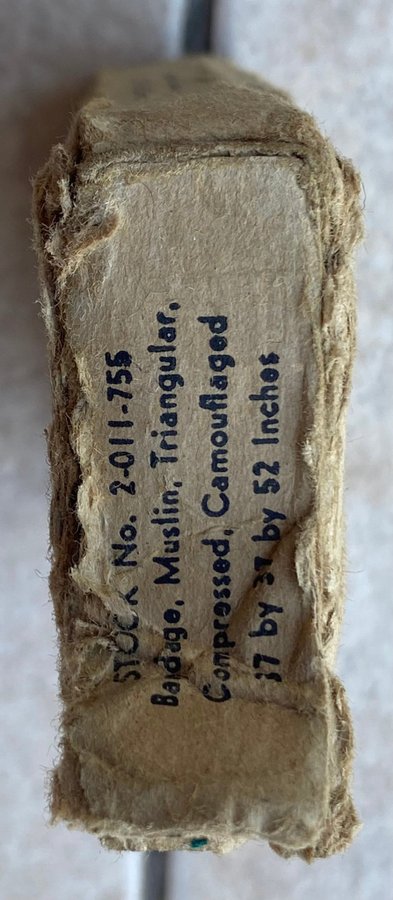 STOCK No. 2-011-755
Bandage, Muslin, Triangular,
Compressed, Camouflaged
37 by 37 by 52 Inches